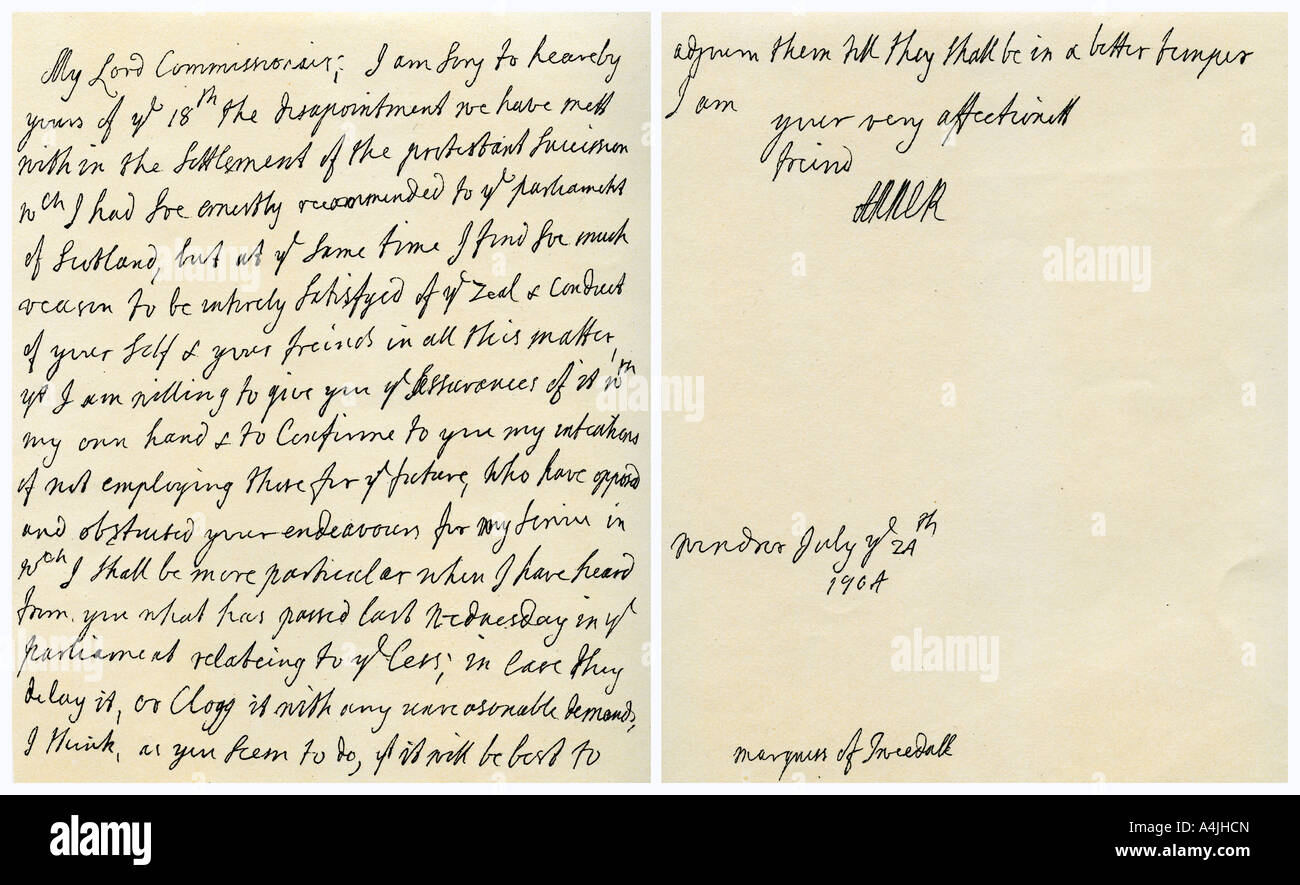 My Lord Commissionair; I am sory to hear by
yours of yᵉ 18ᵗʰ the disapointment we have mett
with in the settlement of the protestant Succession
wᶜʰ I had soe ernestly recommended to yᵉ parliament
of Scotland, but at yᵉ same time I find soe much
reason to be intirely satisfyed of yᵉ zeal & conduct
of your self & your freinds in all this matter,
yᵗ I am willing to give you yᵉ Assurances of it wᵗʰ
my own hand & to Confirme to you my intentions
of not employing those for yᵉ future, who have opposd
and obstructed your endeavours for my service in
wᶜʰ I shall be more particular when I have heard
from you what has passed last Wednesday in yᵉ
parliament relateing to yᵉ Cess; in case they
delay it, or Clogg it with any unreasonable demands,
I think, as you seem to do, yᵗ it will be best to
adjourn them till they shall be in a better temper
I am
your very affectionett
freind
ANNE R
Windsor July yᵉ 24ᵗʰ
1704
marquess of Tweedall
alamy
alamy
alamy
alamy
a
a
a
a
alamy
Image ID: A4JHCN
www.alamy.com